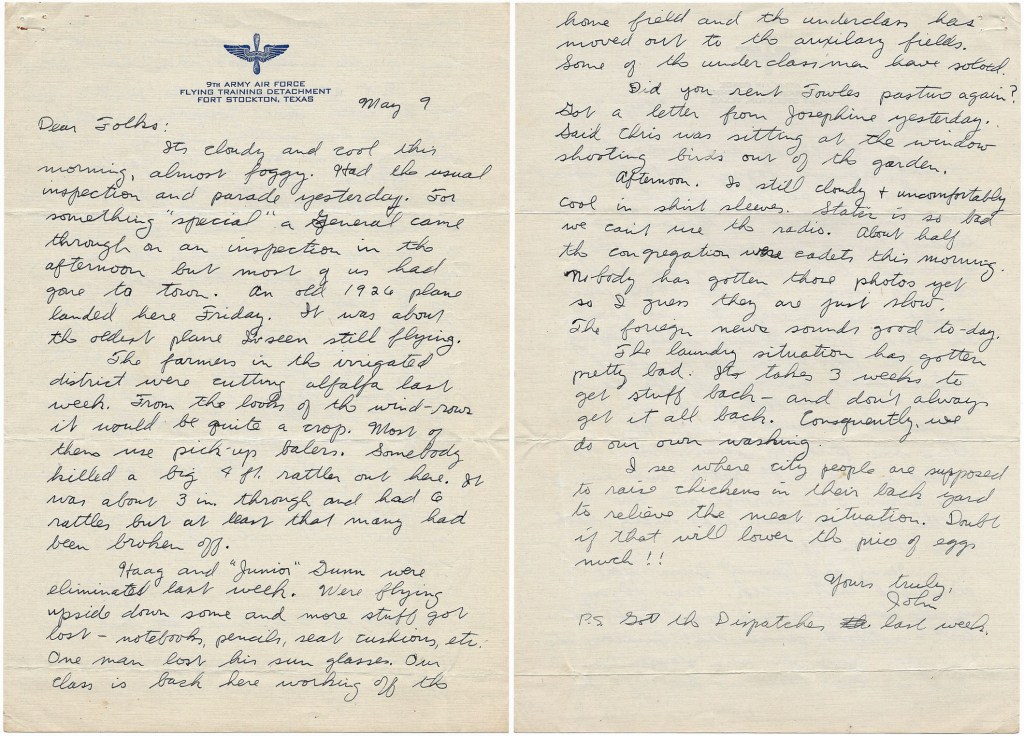 9TH ARMY AIR FORCE
FLYING TRAINING DETACHMENT
FORT STOCKTON, TEXAS
May 9
Dear Folks:
Its cloudy and cool this
morning, almost foggy. Had the usual
inspection and parade yesterday. For
something "special" a General came
through on an inspection in the
afternoon but most of us had
gone to town. An old 1926 plane
landed here Friday. It was about
the oldest plane I've seen still flying.
The farmers in the irrigated
district were cutting alfalfa last
week. From the looks of the wind-rows
it would be quite a crop. Most of
them use pick-up balers. Somebody
killed a big 4 ft. rattler out here. It
was about 3 in. through and had 6
rattles but at least that many had
been broken off.
Haag and "Junior" Dunn were
eliminated last week. Were flying
upside down some and more stuff got
lost - notebooks, pencils, seat cushions, etc.
One man lost his sun glasses. Our
class is back here working off the
home field and the underclass has
moved out to the auxilary fields.
Some of the underclassmen have soloed.
Did you rent Fowles pasture again?
Got a letter from Josephine yesterday.
Said Chris was sitting at the window
shooting birds out of the garden.
Afternoon. Is still cloudy + uncomfortably
cool in shirt sleeves. Static is so bad
we can't use the radio. About half
the congregation were cadets this morning.
Nobody has gotten those photos yet
so I guess they are just slow.
The foreign news sounds good to-day.
The laundry situation has gotten
pretty bad. Its takes 3 weeks to
get stuff back - and don't always
get it all back. Consequently, we
do our own washing.
I see where city people are supposed
to raise chickens in their back yard
to relieve the meat situation. Doubt
if that will lower the price of eggs
much!!
Yours truly,
John
P.S. Got the Dispatches last week.